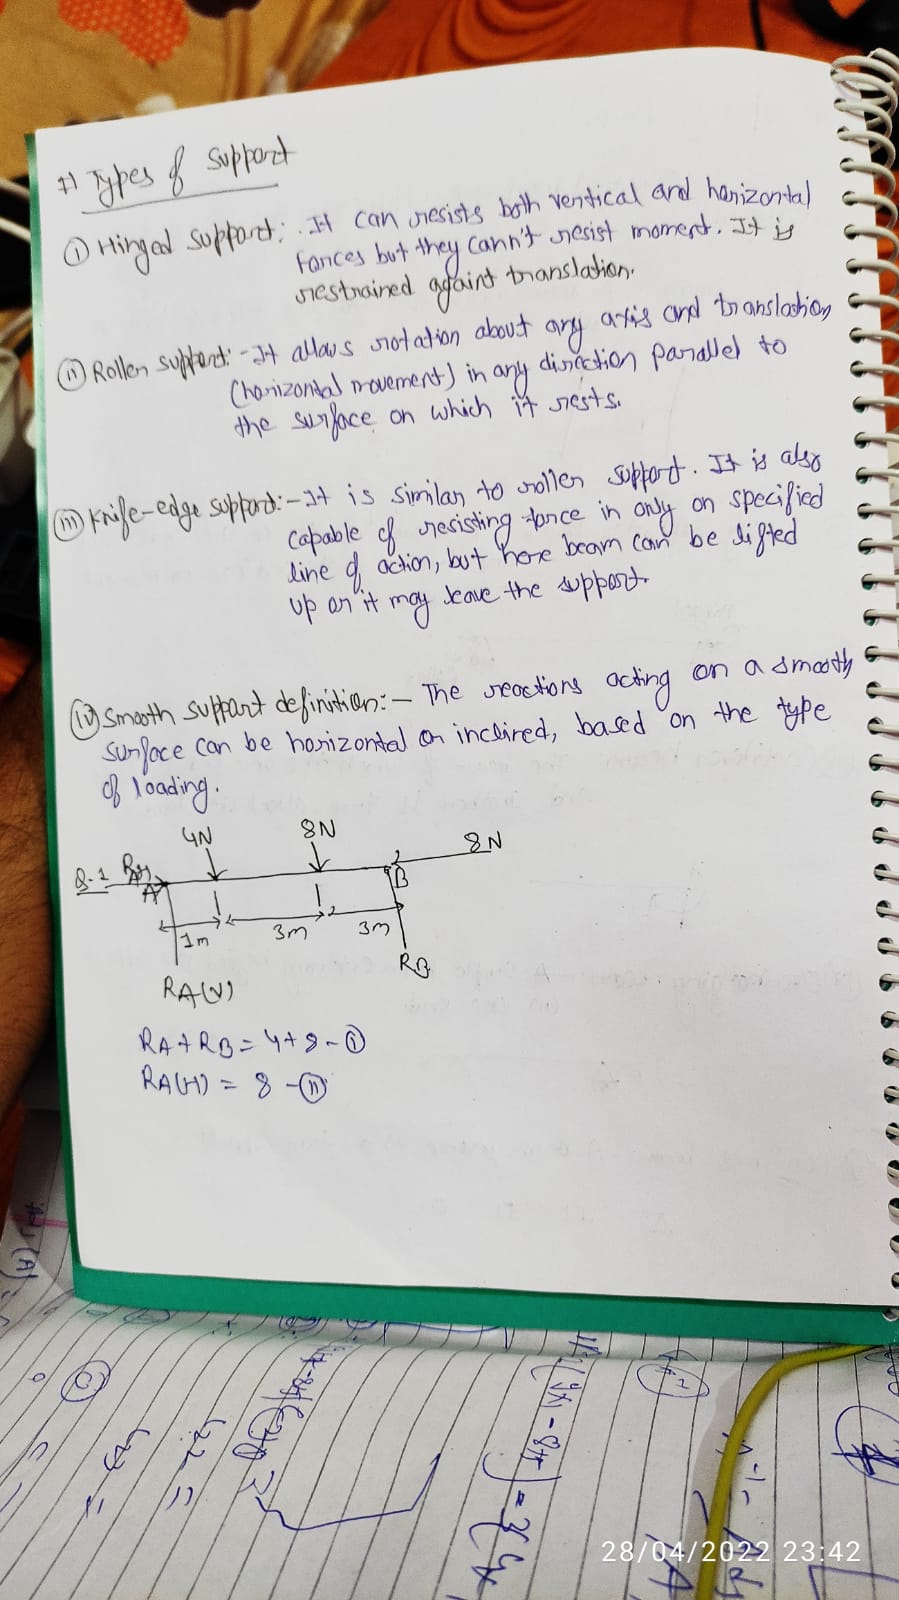 #) Types of support
(i) Hinged support: It can resists both vertical and horizontal
forces but they cann't resist moment. It is
restrained againt translation.
(ii) Roller support:- It allows rotation about any axis and translation
(horizontal movement) in any direction parallel to
the surface on which it rests.
(iii) Knife-edge support:- It is similar to roller support. It is also
capable of resisting force in only on specified
line of action, but here beam can be lifted
up or it may leave the support.
(iv) Smooth support definition:- The reactions acting on a smooth
surface can be horizontal or inclired, based on the type
of loading.
4N 8N 8N
Q.1 A B
1m 3m 3m
RA(V) RB
RA+RB = 4+8 - (i)
RA(H) = 8 - (ii)
28/04/2022 23:42